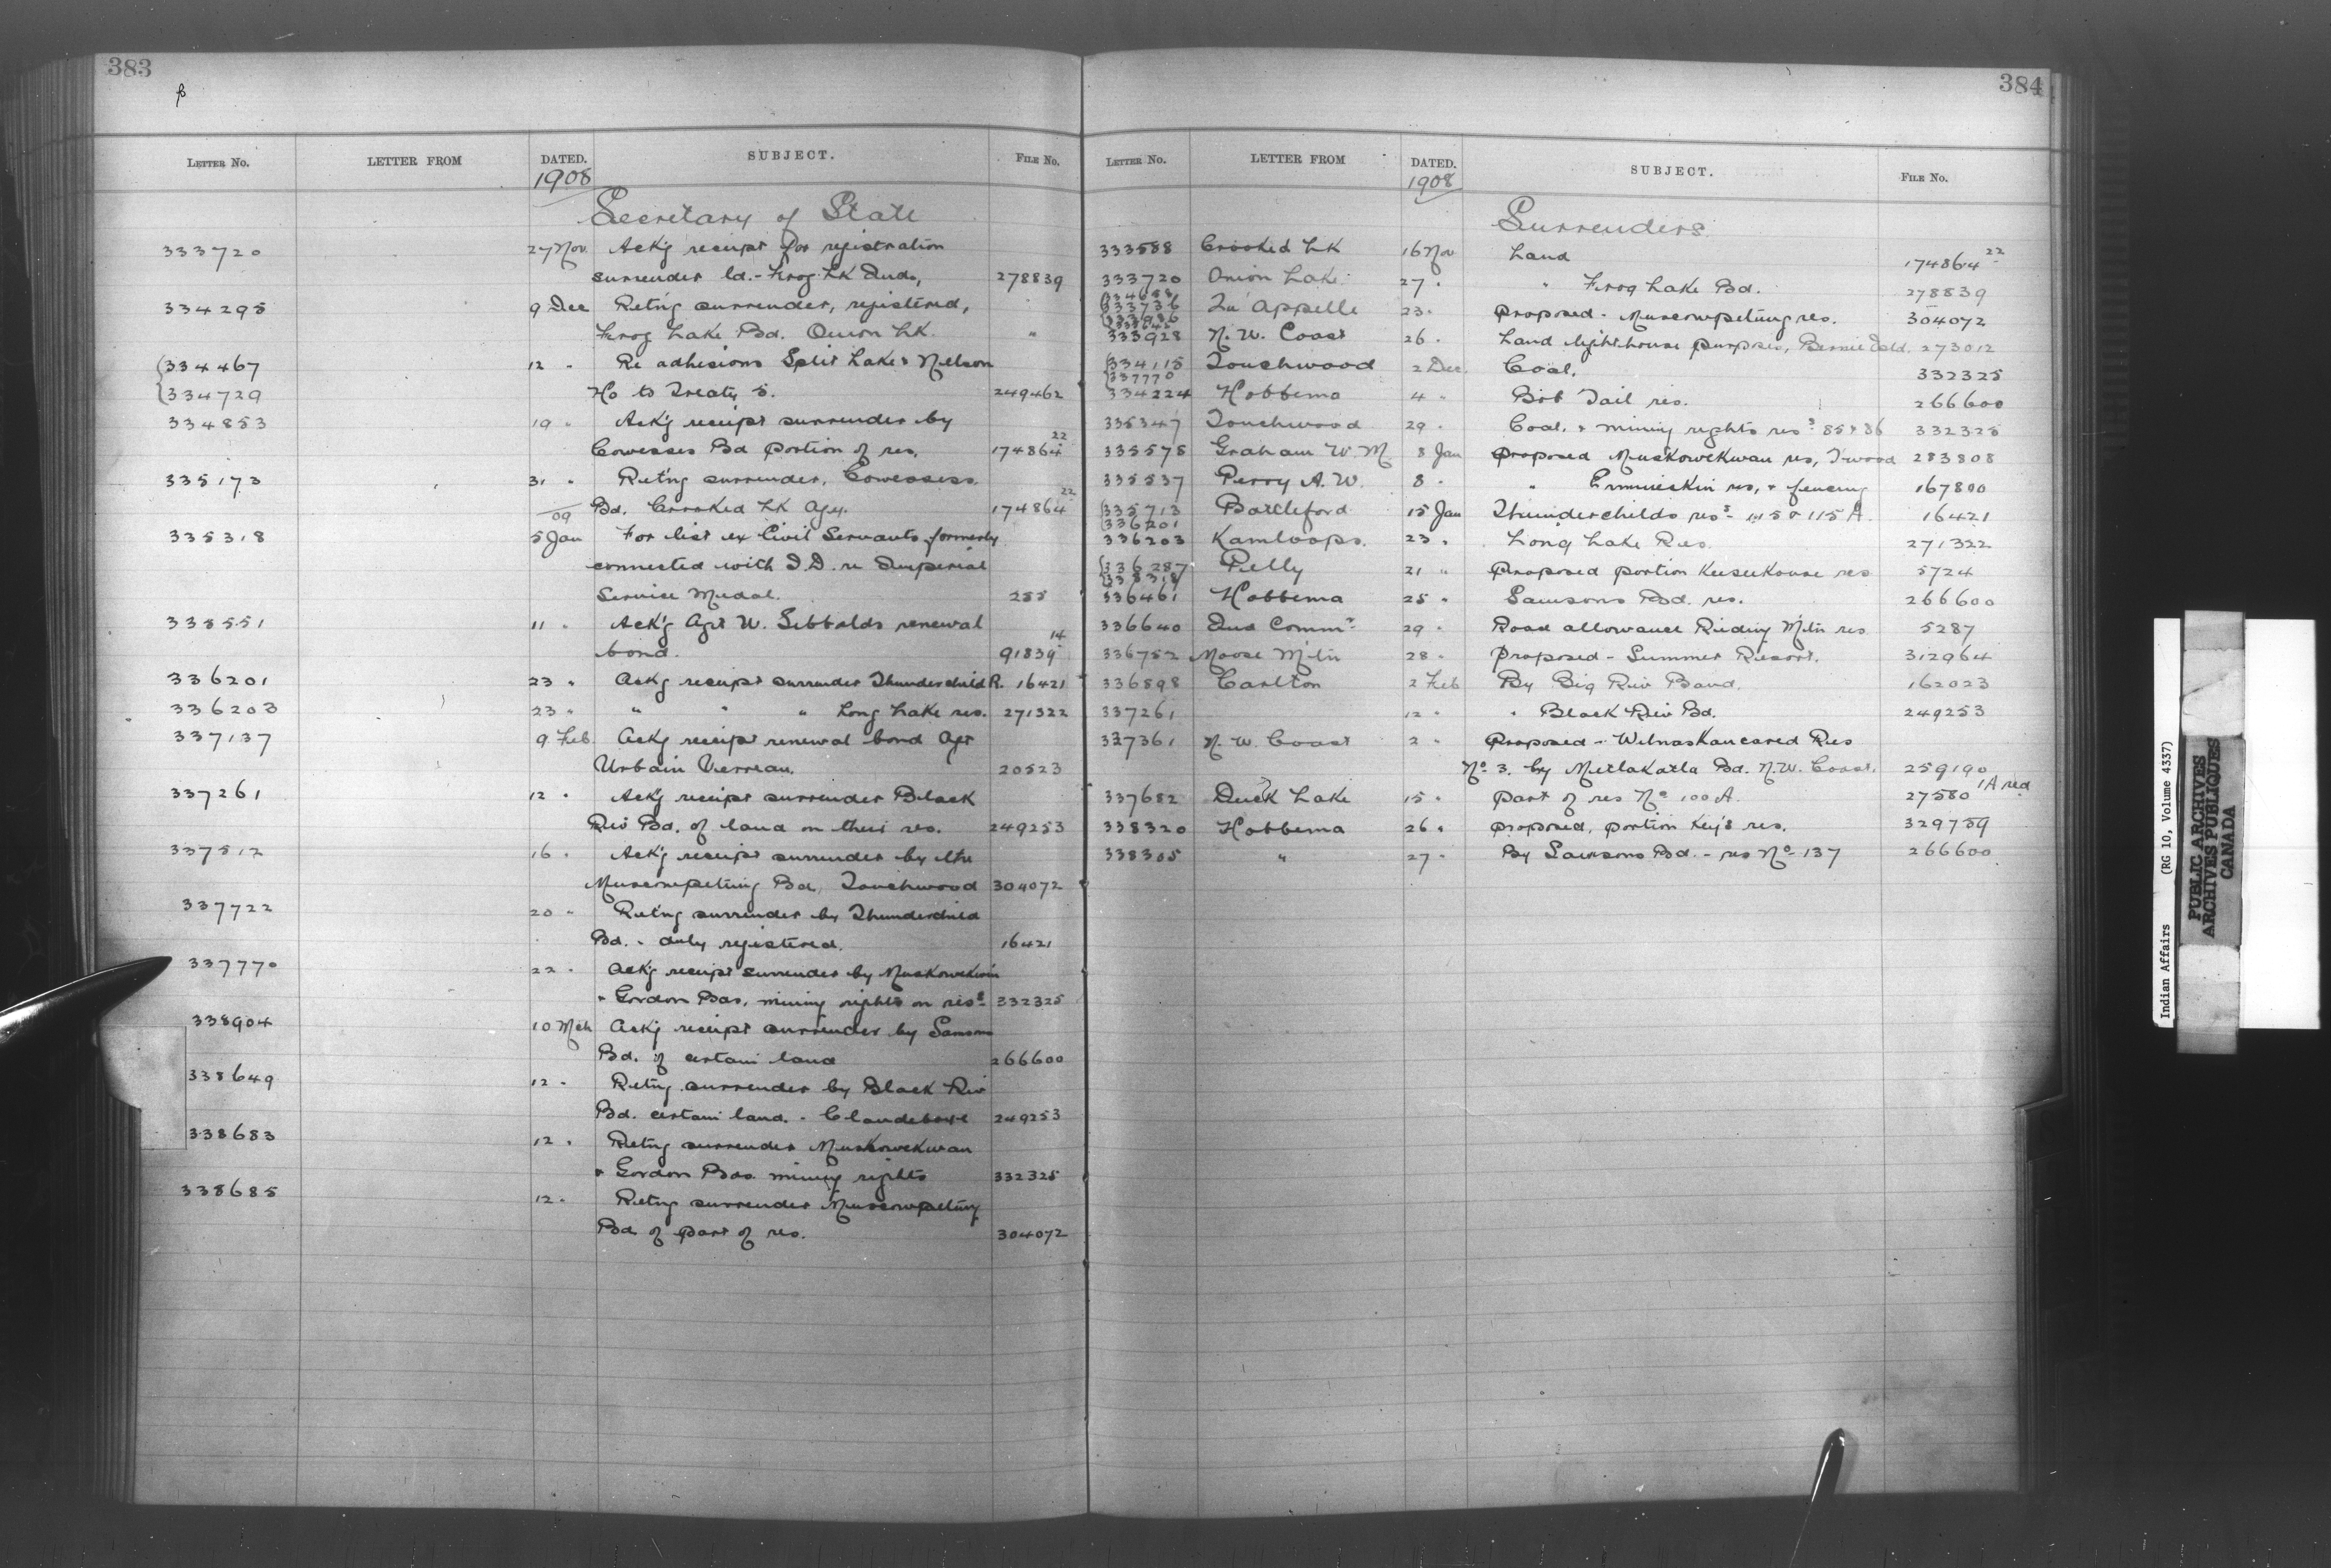 383
β
LETTER No. LETTER FROM DATED. SUBJECT. FILE No.
1908
Secretary of State
333720 27 Nov Ack'g receipt for registration
surrender ld. - Frog Lk Inds, 278839
334295 9 Dec Ret'ng surrender, registered,
Frog Lake Bd. Onion Lk. "
334467 12 " Re adhesions Split Lake & Nelson
334729 Ho to Treaty 5. 249462
334853 19 " Ack'g receipt surrender by
Cowesses Bd portion of res. 174864 22
335173 31 " Ret'ng surrender, Cowessess
09 Bd. Crooked Lk Agy. 174864 22
335318 5 Jan For list ex Civil Servants formerly
connected with I.D. re Imperial
Service Medal. 255
335551 11 " Ack'g Agt W. Sibbalds renewal
bond. 91839 14
336201 23 " Ackg receipt surrender Thunderchild R. 16421
336203 23 " " " " Long Lake res. 271322
337137 9 Feb Ackg receipt renewal bond Agt
Urbain Verreau. 20523
337261 12 " Ack'g receipt surrender Black
Riv Bd. of land on their res. 249253
337512 16 " Ack'g receipt surrender by the
Muscowpetung Bd, Touchwood 304072
337722 20 " Ret'ng surrender by Thunderchild
Bd. - duly registered. 16421
337770 22 " Ackg receipt surrender by Muskowekwin
& Gordon Bds. mining rights on ress 332325
338904 10 Mch Ackg receipt surrender by Samsons
Bd. of certain land 266600
338649 12 " Retng surrender by Black Riv
Bd. certain land. - Clandeboye 249253
338683 12 " Retng surrender Muskowekwan
& Gordon Bds. mining rights 332325
338685 12 " Retng surrender Muscowpetung
Bd of part of res. 304072
384
LETTER No. LETTER FROM DATED. SUBJECT. FILE No.
1908
Surrenders
333588 Crooked Lk 16 Nov Land 174864 22
333720 Onion Lake 27 " " Frog Lake Bd. 278839
333736 Qu'Appelle 23 " Proposed - Muscowpetung res. 304072
333928 N. W. Coast 26 " Land lighthouse purposes, 273012
334115 Touchwood 2 Dec Coal. 332325
337770
334224 Hobbema 4 " Bob Tail res. 266600
335347 Touchwood 29 " Coal, & mining rights ress 85 & 86 332325
335578 Graham W. M. 8 Jan Proposed Muskowekwan res, T'wood 283808
335537 Perry A. W. 8 " " Ermineskin res, & fencing 167800
335713 Battleford 15 Jan Thunderchilds ress 115 & 115 A. 16421
336201
336203 Kamloops. 23 " Long Lake Res. 271322
336287 Pelly 21 " Proposed portion Keeseekouse res 5724
338318
336461 Hobbema 25 " Samsons Bd. res. 266600
336640 Ind Commr 29 " Road allowance Riding Mtn res 5287
336752 Moose Mtn 28 " Proposed - Summer Resort. 312964
336898 Carlton 2 Feb By Big Riv Band. 162023
337261 12 " " Black Riv Bd. 249253
327361 N. W. Coast 2 " Proposed - Wilnaskancared Res
No 3. by Metlakatla Bd. N.W. Coast. 259190
337682 Duck Lake 15 " Part of res No 100 A. 27580 1A red
338320 Hobbema 26 " Proposed, portion Key's res. 329759
338305 " 27 " By Samsons Bd. - res No 137 266600
Indian Affairs (RG 10, Volume 4337)
PUBLIC ARCHIVES
ARCHIVES PUBLIQUES
CANADA